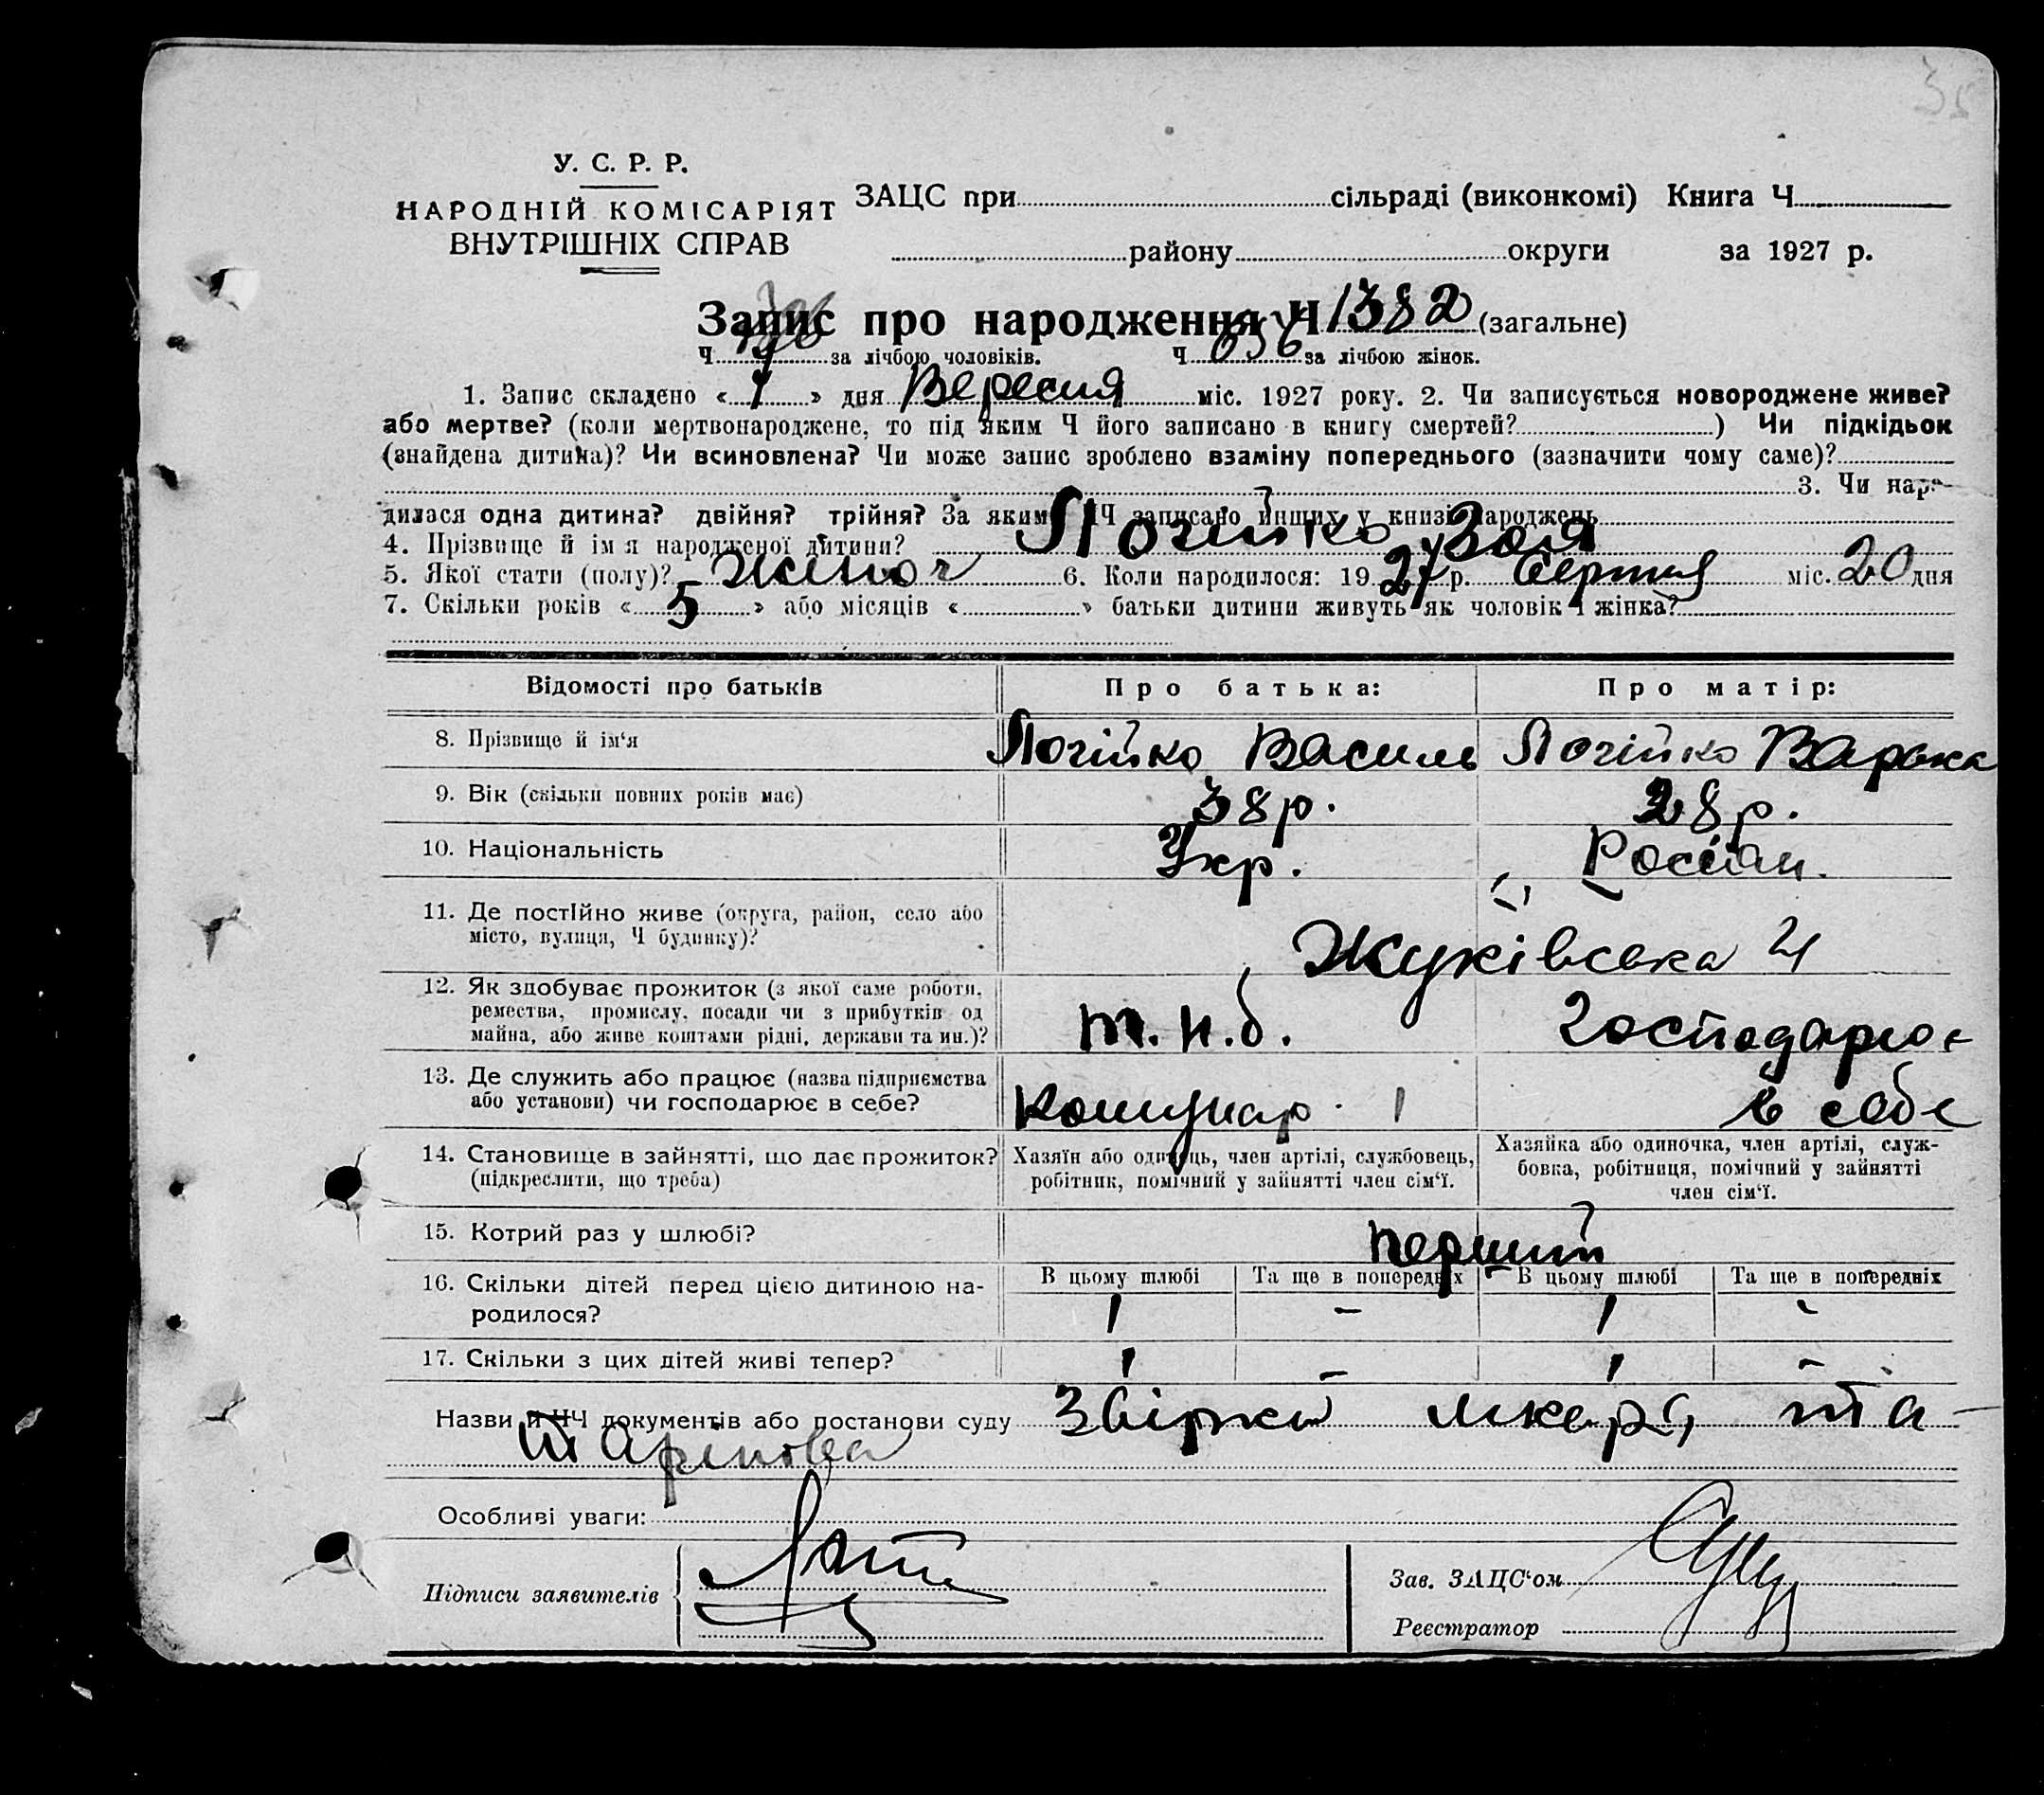 У. С. Р. Р.
НАРОДНІЙ КОМІСАРІЯТ
ВНУТРІШНІХ СПРАВ
ЗАЦС при сільраді (виконкомі) Книга Ч
району округи за 1927 р.
Запис про народження Ч 1382 (загальне)
Ч за лічбою чоловіків. Ч 656 за лічбою жінок.
1. Запис складено « 1 » дня Вересня міс. 1927 року. 2. Чи записується новороджене живе?
або мертве? (коли мертвонароджене, то під яким Ч його записано в книгу смертей? ) Чи підкідьок
(знайдена дитина)? Чи всиновлена? Чи може запис зроблено взаміну попереднього (зазначити чому саме)?
3. Чи наро-
дилася одна дитина? двійня? трійня? За яким ЧЧ записано инших у книзі народжень
4. Прізвище й ім'я народженої дитини? Логійко Зоя
5. Якої стати (полу)? Жіноч 6. Коли народилося: 19 27 р. Серпня міс. 20 дня
7. Скільки років « 5 » або місяців « » батьки дитини живуть як чоловік і жінка?
Відомості про батьків Про батька: Про матір:
8. Прізвище й ім'я Логійко Василь Логійко Варька
9. Вік (скільки повних років має) 38 р. 28 р.
10. Національність Укр. Росіян.
11. Де постійно живе (округа, район, село або
місто, вулиця, Ч будинку)? Жуківська 4
12. Як здобуває прожиток (з якої саме роботи,
ремества, промислу, посади чи з прибутків од
майна, або живе коштами рідні, держави та ин.)? т. н. б. Господарює
13. Де служить або працює (назва підприємства
або установи) чи господарює в себе? Комунар. в себе
14. Становище в зайнятті, що дає прожиток?
(підкреслити, що треба)
Хазяїн або одинець, член артілі, службовець,
робітник, помічний у зайнятті член сім'ї.
Хазяйка або одиночка, член артілі, служ-
бовка, робітниця, помічний у зайнятті
член сім'ї.
15. Котрий раз у шлюбі? перший
16. Скільки дітей перед цією дитиною на-
родилося?
В цьому шлюбі Та ще в попередніх В цьому шлюбі Та ще в попередніх
1 - 1 -
17. Скільки з цих дітей живі тепер? 1 - 1 -
Назви й ЧЧ документів або постанови суду та
Особливі уваги:
Підписи заявителів
Зав. ЗАЦС'ом
Реєстратор